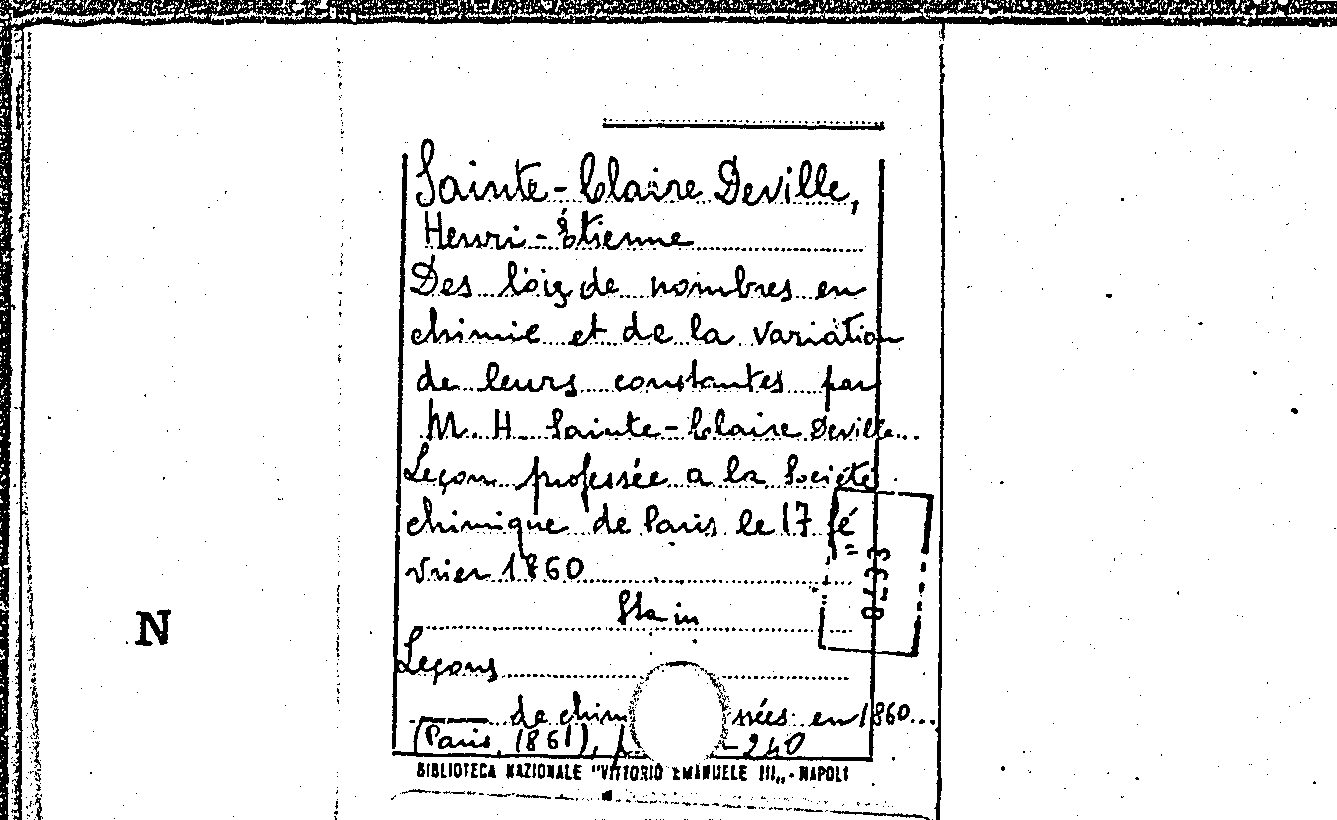 Sainte-Claire Deville,
Henri-Étienne
Des lois de nombres en
chimie et de la variation
de leurs constantes par
M. H. Sainte-Claire Deville...
Leçon professée a la Société
chimique de Paris le 17 fé
=
vrier 1860
Sta in
Leçons
de chim nées en 1860...
(Paris, 1861), p -240
BIBLIOTECA NAZIONALE "VITTORIO EMANUELE III„ - NAPOLI
N